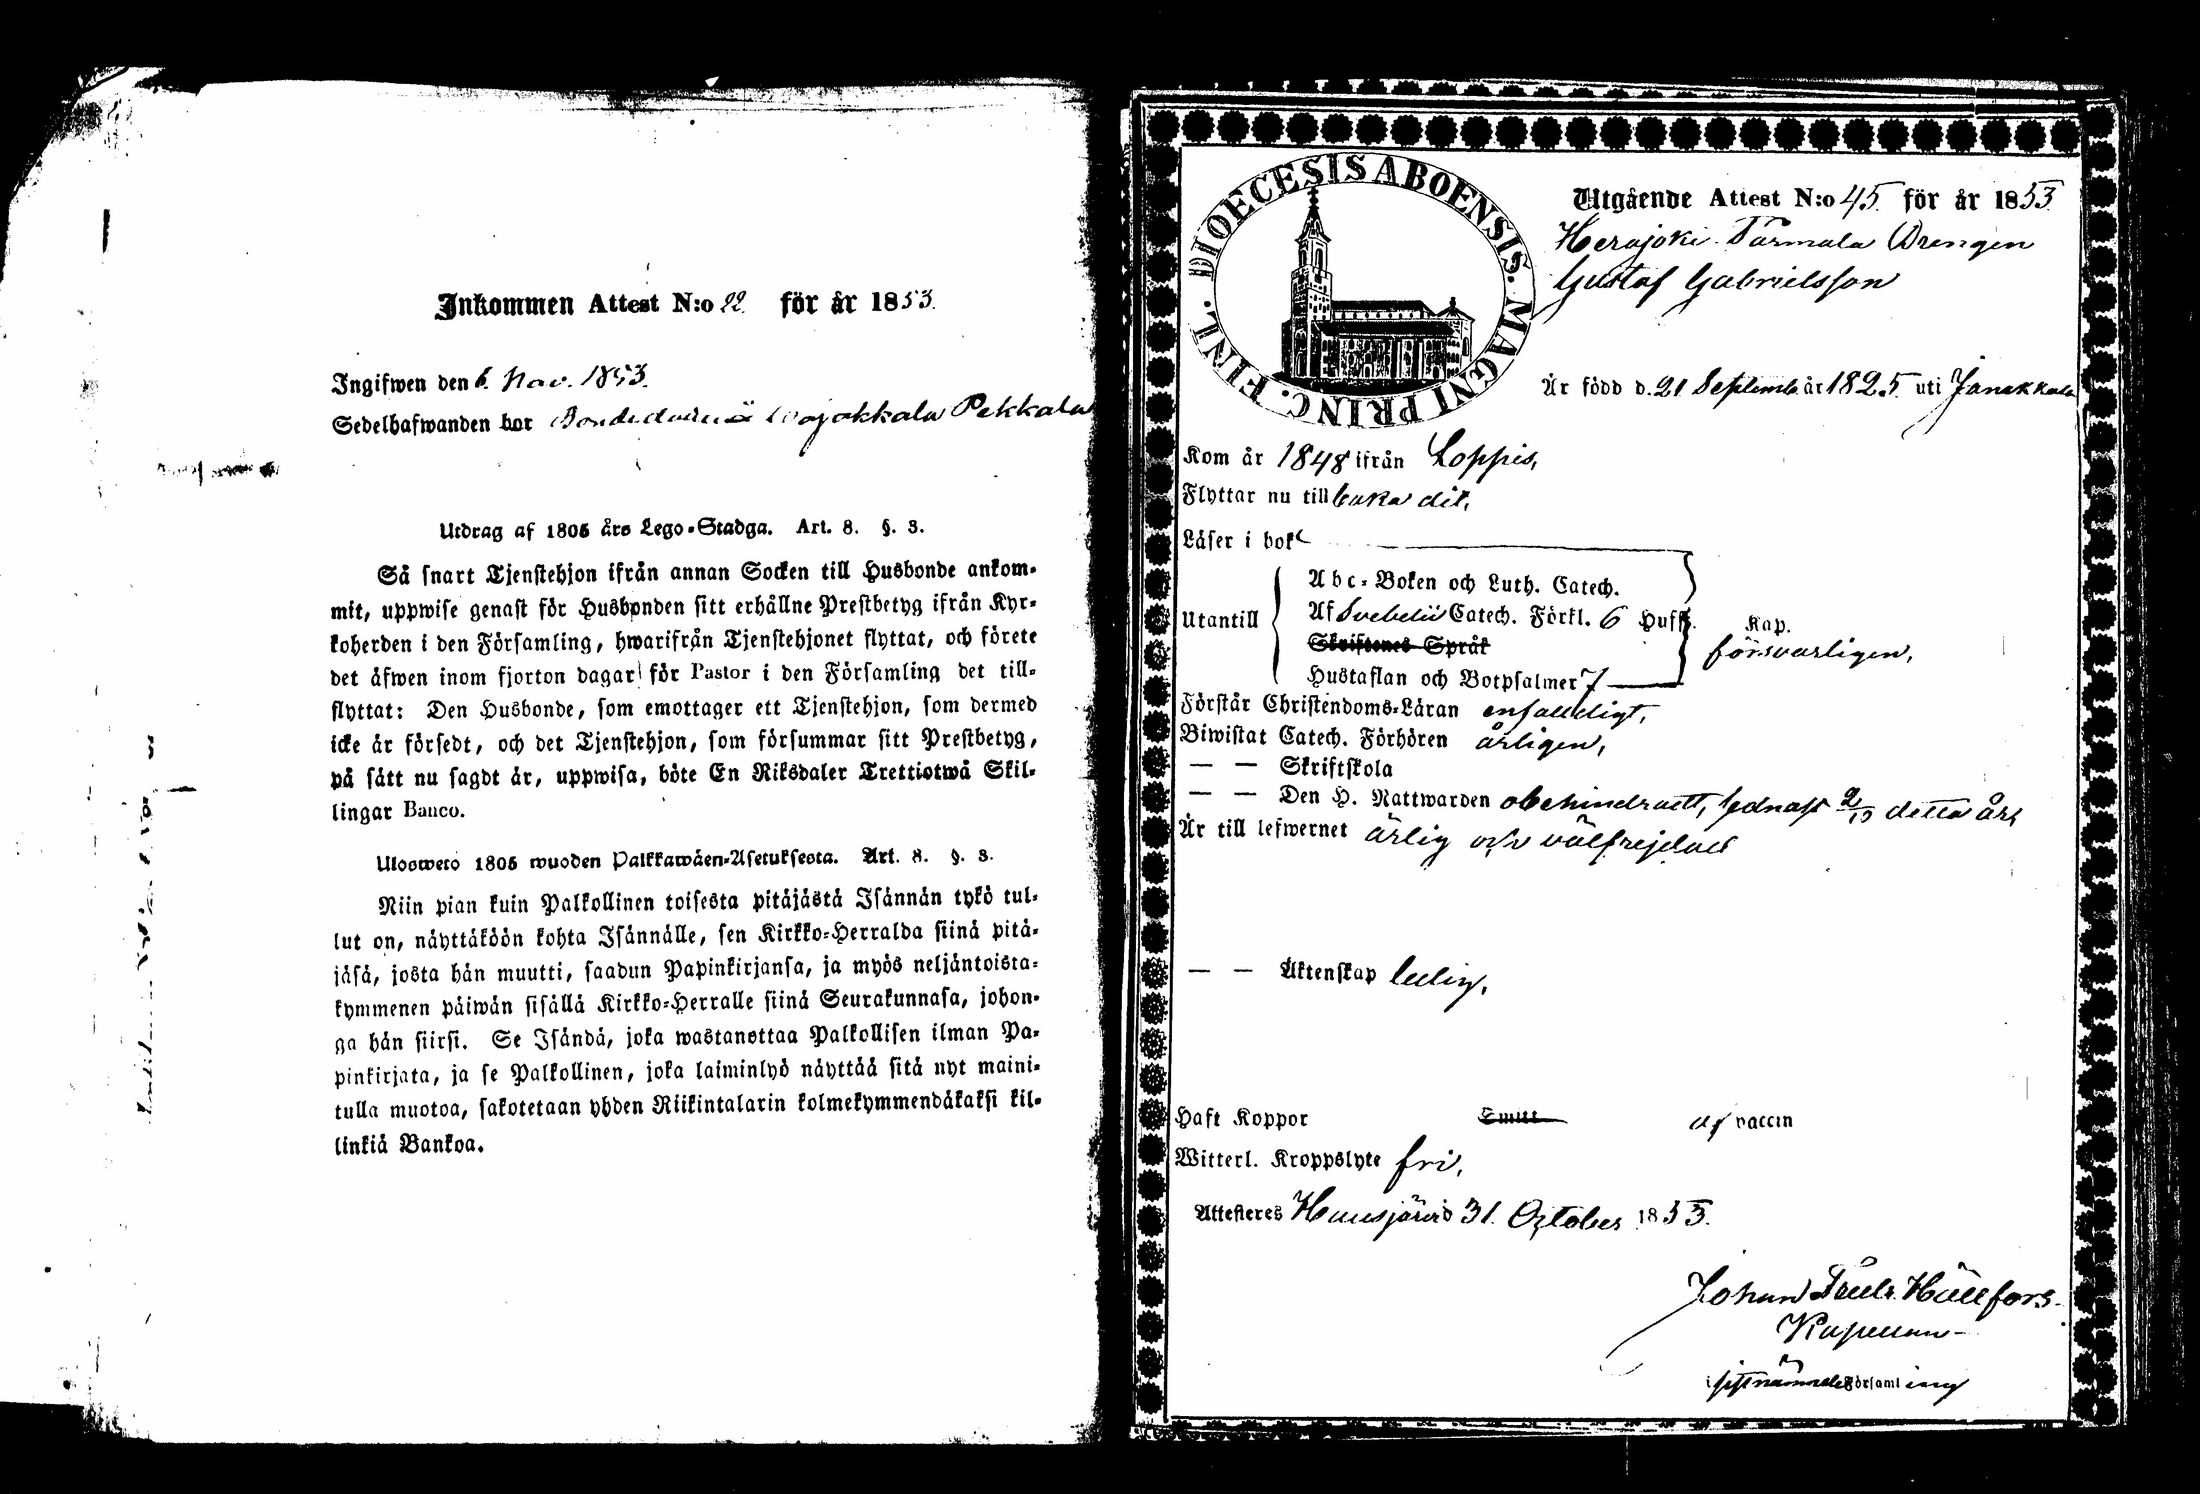 Inkommen Attest N:o 22. för år 1853.
Ingifwen den 6. Nov. 1853.
Sedelhafwanden bor Wojakkala Pekkala
Utdrag af 1805 års Lego-Stadga. Art. 8. §. 3.
Så snart Tjenstehjon ifrån annan Socken till Husbonde ankom-
mit, uppwise genast för Husbonden sitt erhållne Prestbetyg ifrån Kyr-
koherden i den Församling, hwarifrån Tjenstehjonet flyttat, och förete
det äfwen inom fjorton dagar för Pastor i den Församling det till-
flyttat: Den Husbonde, som emottager ett Tjenstehjon, som dermed
icke är försedt, och det Tjenstehjon, som försummar sitt Prestbetyg,
på sätt nu sagdt är, uppwisa, böte En Riksdaler Trettiotwå Skil-
lingar Banco.
Ulosweto 1805 wuoden Palkkawäen-Asetuksesta. Art. 8. §. 3.
Niin pian kuin Palkollinen toisesta pitäjästä Isännän tykö tul-
lut on, näyttäköön kohta Isännälle, sen Kirkko-Herralda siinä pitä-
jäsä, josta hän muutti, saadun Papinkirjansa, ja myös neljäntoista-
kymmenen päiwän sisällä Kirkko-Herralle siinä Seurakunnasa, johon-
ga hän siirsi. Se Isändä, joka wastanottaa Palkollisen ilman Pa-
pinkirjata, ja se Palkollinen, joka laiminlyö näyttää sitä nyt maini-
tulla muotoa, sakotetaan yhden Riikintalarin kolmekymmendäkaksi kil-
linkiä Bankoa.
DIOECESIS ABOENSIS. MAGNI PRINC. FINL.
Utgående Attest N:o 45. för år 1853
Herajoki Tarmala Drengen
Gustaf Gabrielsson
Är född d. 21 Septemb. år 1825 uti Janakkala
Kom år 1848 ifrån Loppis,
Flyttar nu tillbaka dit,
Läser i bok
Utantill
Abc-Boken och Luth. Catech.
Af Svebelii Catech. Förkl. 6 Hufst. Kap.
Skriftenes Språk
försvarligen,
Hustaflan och Botpsalmer 7
Förstår Christendoms-Läran enfaldigt,
Biwistat Catech. Förhören årligen,
— — Skriftskola
— — Den H. Nattwarden obehindradt, sednast 2/10 detta år,
Är till lefwernet ärlig och välfrejdad
— — Äktenskap ledig,
Haft Koppor Smitt af vaccin
Witterl. Kroppslyte fri,
Attesteres Hausjärvi 31. October 1853.
Johan Hällfors
Kapellan
i sistnämnde Församling